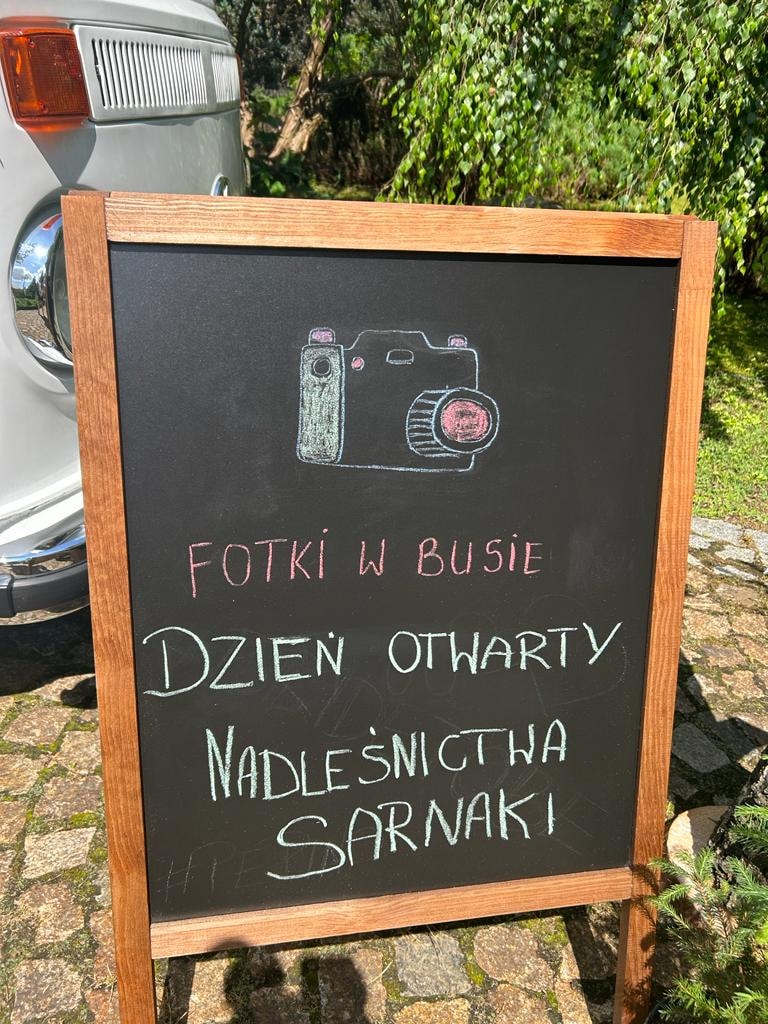 FOTKi W BUSiE
DZIEŃ OTWARTY
NADLEŚNICTWA
SARNAKI